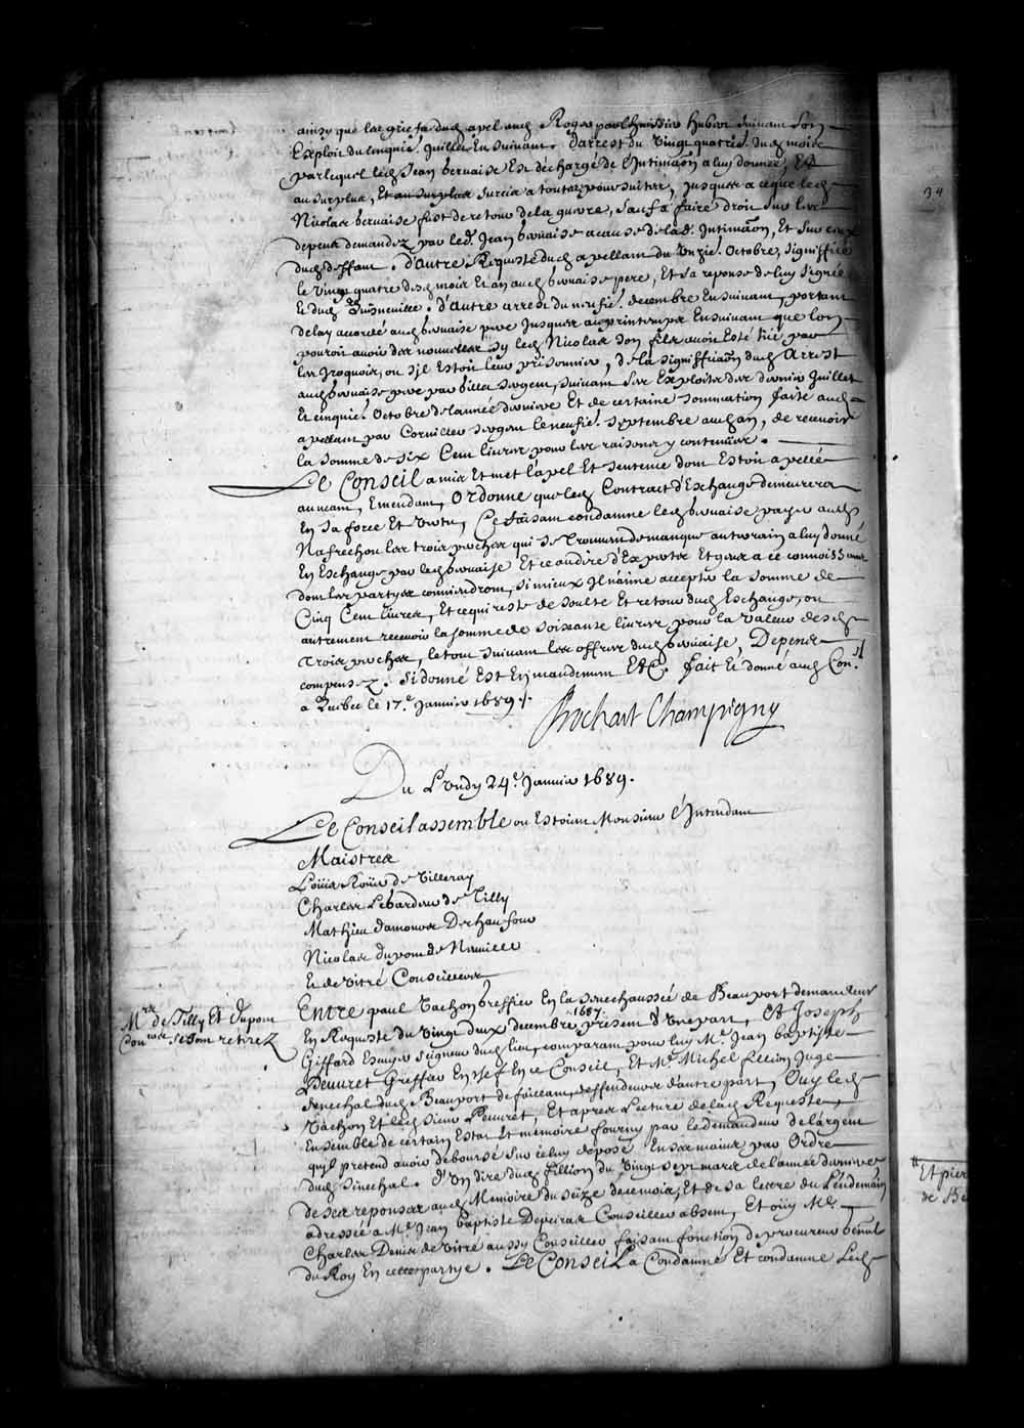 ainsy que les griefs dud apel aud Roger par l'huissier Hubert suivant son
Exploit du cinquie. Juillet En suivant. d'arrest du vingt quatrie. dud mois
par lequel led Jean Gervaise Est déchargé de l'Intimaon a luy donnée, Et
au surplus, Et au surplus surcis a toutes poursuittes, jusques a ce que led
Nicolas Gervaise fust de retour de la guerre, sauf a faire droit sur les
depens demandez par led. Jean Gervaise a cause de lad. Intimaon, Et sur ceux
dud deffaut. d'autre Requeste dud apellant du unzie. Octobre, signiffiée
le vingt quatre desd mois et an aud Gervaise pere, Et sa reponse de luy signée
Et dud . d'autre arrest du neufie. decembre En suivant, portant
delay accordé aud Gervaise pere jusques au printemps Ensuivant que l'on
pouroit avoir des nouvelles sy led Nicolas son fils avoit Esté tüé par
les Iroquois, ou s'il Estoit leur prisonnier, de la signiffiaon dud Arrest
aud Gervaise pere par sergent, suivant ses Exploits des dernier Juillet
Et cinquie. Octobre de l'année derniere Et de certaine sommation faite aud
apellant par Cornillier sergent le neufie. septembre aud an, de recevoir
la somme de six Cent livres pour les raisons y contenües.
Le Conseil a mis Et met l'apel Et sentence dont Estoit apellé
au neant, Emendant, Ordonne que led Contract d'Eschange demeurera
En sa force Et vertu, Ce faisant condamne led Gervaise payer aud
Nafrechou les trois perches qui se trouvent de manque au terrain a luy donné
En Eschange par led Gervaise Et ce au dire d'Experts Et gens a ce connoissans
dont les partyes conviendront, si mieux Il n'aime accepter la somme de
Cinq Cent livres, Et ce qui reste de soulte Et retour dud Eschange, ou
autrement recevoir la somme de soixante livres pour la valeur desd
trois perches, le tout suivant les offres dud Gervaise, Depens
compensez. Si donné Est En mandement Et Ca. fait Et donné aud Con.el
a Quebec le 17.e Janvier 1689.
Bochart Champigny
Du Lundy 24.e Janvier 1689.
Le Conseil assemblé ou Estoient Monsieur l'Intendant
Maistres
Loüis Roüer de Villeray
Charles Lebardeur de Tilly
Mathieu Damours Deschaufour
Nicolas Dupont de Neuville
Et de Vitré Conseillers
Mrs. de Tilly Et dupont
Coners. se sont retirez
Entre paul Vachon greffier En la senechaussée de Beauport demandeur
En Requeste du vingt deux decembre 1687. présent d'une part, Et Joseph
Giffard Escuyer seigneur dud lieu, comparant pour luy Me. Jean baptiste
Peuvret Greffier En chef En ce Conseil, Et Me. Michel fillion Juge
Senechal dud Beauport deffaillant, deffendeurs d'autre part, Ouy led
Vachon Et led sieur Peuvret, Et apres Lecture de lad Requeste,
Ensemble de certain Estat Et memoire fourny par le demandeur de l'argent
qu'il pretend avoir deboursé sur celuy déposé En ses mains par Ordre
dud Senechal. d'un dire dud fillion du vingt sept mars de l'année derniere
de ses reponses aud Memoire du seize desd mois, Et de sa lettre du Lendemain
adressée a Me. Jean baptiste Depeiras Conseiller absent, Et oüy Me.
Charles Denis de Vitré aussy Conseiller faisant fonction de procureur général
du Roy En cette partye. Le Conseil a Condamné Et condamne Led
34
Et pier
de Be